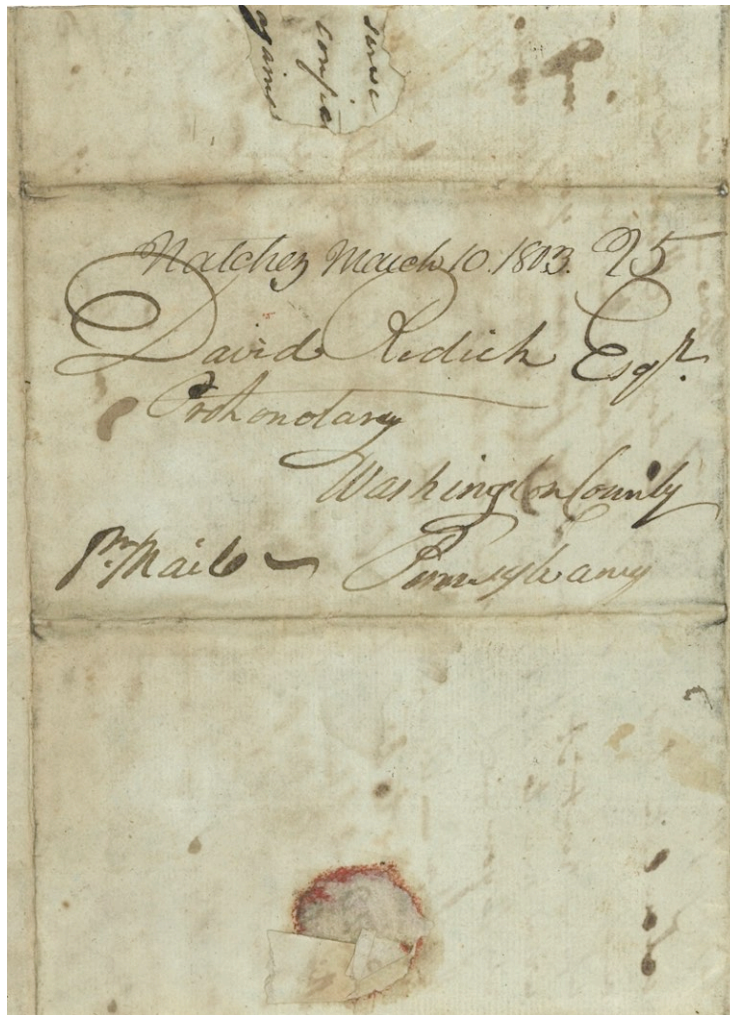 serve
confie
agains
Natchez March 10. 1803. 25
David Redick Esqr.
Prothonotary
Washington County
Pr. Mail Pennsylvany